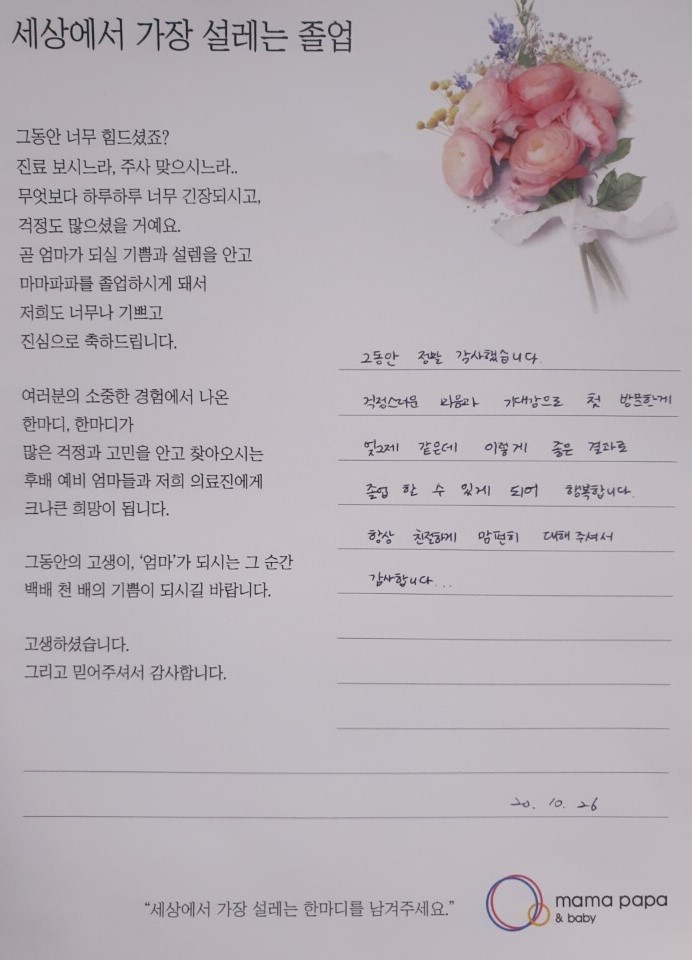 세상에서 가장 설레는 졸업
그동안 너무 힘드셨죠?
진료 보시느라, 주사 맞으시느라..
무엇보다 하루하루 너무 긴장되시고,
걱정도 많으셨을 거예요.
곧 엄마가 되실 기쁨과 설렘을 안고
마마파파를 졸업하시게 돼서
저희도 너무나 기쁘고
진심으로 축하드립니다.
여러분의 소중한 경험에서 나온
한마디, 한마디가
많은 걱정과 고민을 안고 찾아오시는
후배 예비 엄마들과 저희 의료진에게
크나큰 희망이 됩니다.
그동안의 고생이, '엄마'가 되시는 그 순간
백배 천 배의 기쁨이 되시길 바랍니다.
고생하셨습니다.
그리고 믿어주셔서 감사합니다.
그동안 정말 감사했습니다.
걱정스러운 마음과 기대감으로 첫 방문한게
엊그제 같은데 이렇게 좋은 결과로
졸업 할 수 있게 되어 행복합니다.
항상 친절하게 맘편히 대해 주셔서
감사합니다...
20. 10. 26
"세상에서 가장 설레는 한마디를 남겨주세요."
mama papa
& baby